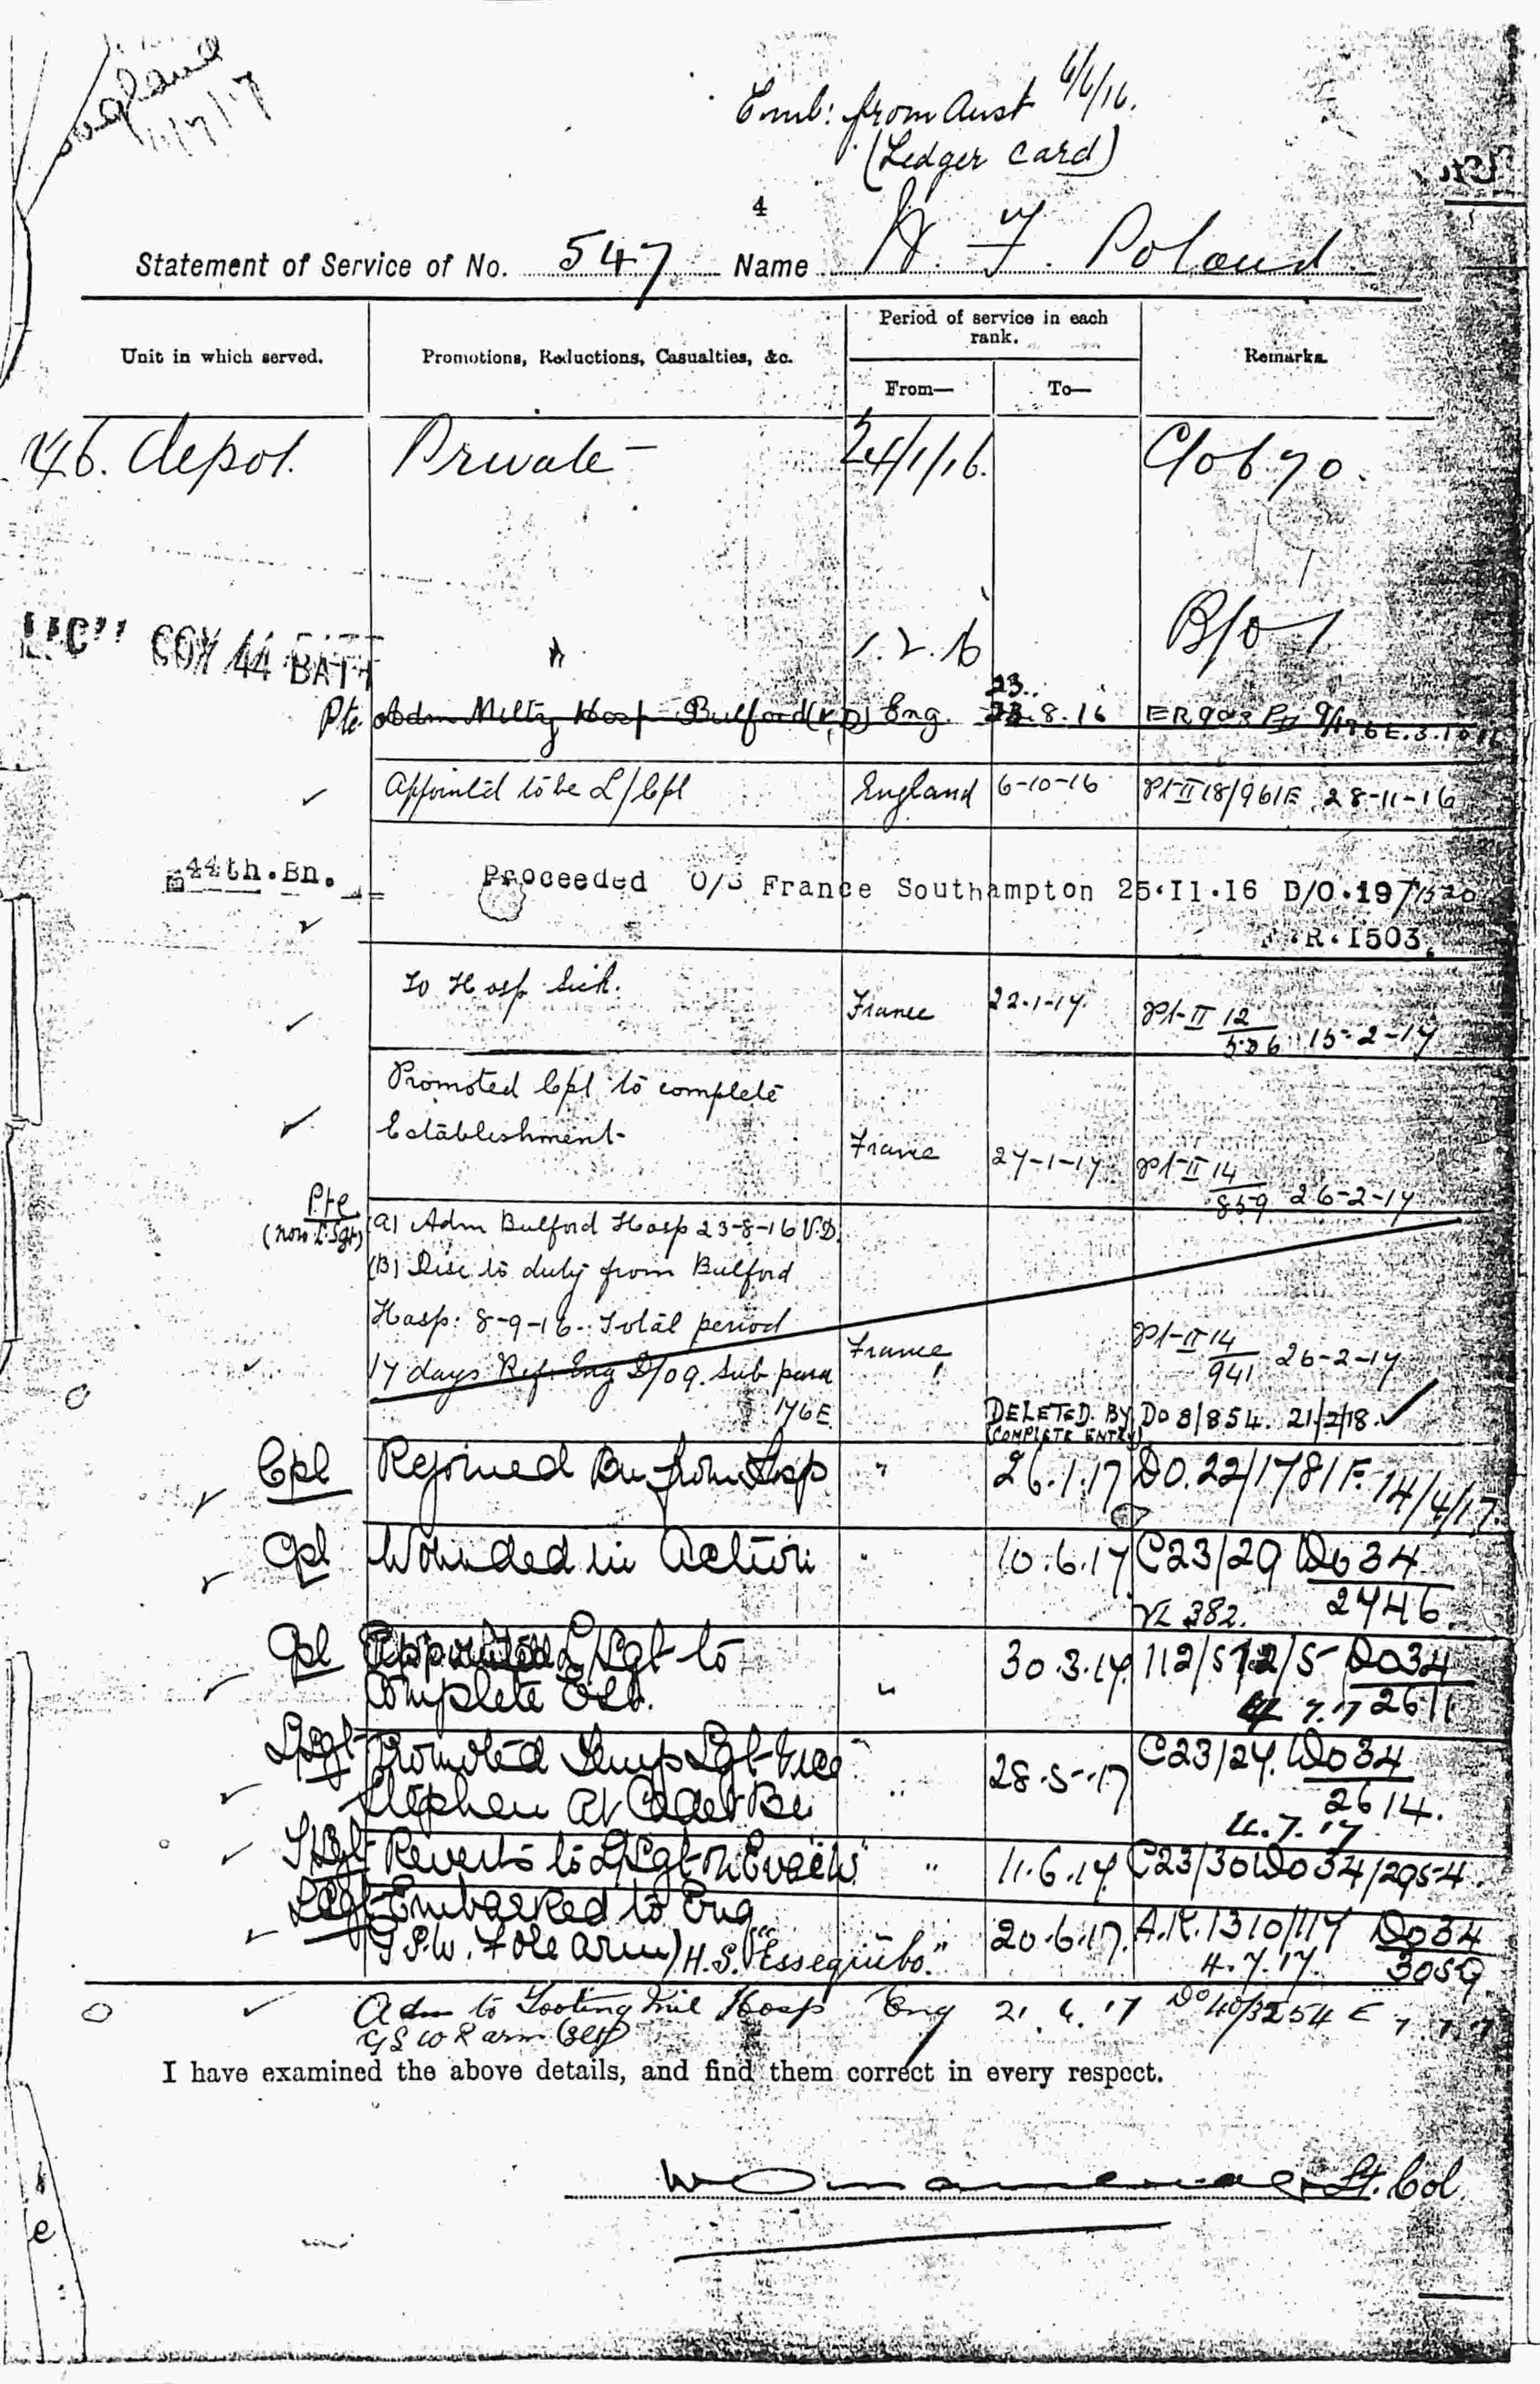 England
11/7/17
Emb: from Aust 6/6/16.
(Ledger card)
4
Statement of Service of No. 547 Name H. F. Poland
Unit in which served. Promotions, Reductions, Casualties, &c. Period of service in each rank. Remarks.
From— To—
46. depot. Private — 24/1/16.
"C" COY 44 BATT " 1.2.16
Pte. Adm Milty Hosp Bulford (V.D) Eng. 23.8.16
Appointed to be L/Cpl England 6-10-16 Pt-II 18/961E 28-11-16
44th.Bn. Proceeded O/S France Southampton 25.II.16 D/O.19/1520
R.I503.
To Hosp Sick. France 22-1-17. Pt-II 12/506 15-2-17
Promoted Cpl to complete
Establishment- France 27-1-17 Pt-II 14/859 26-2-17
Pte (now L.Sgt) (a) Adm Bulford Hosp 23-8-16 V.D.
(B) Disc to duty from Bulford
Hosp: 8-9-16. Total period
17 days Ref. Eng D/O 9. Sub para France Pt-II 14/941 26-2-17
176E.
DELETED. BY DO 8/854. 21/2/18.
(COMPLETE ENTRY)
Cpl Rejoined Bn from Hosp " 26.1.17 DO.22/1781F. 14/4/17.
Cpl Wounded in Action " 10.6.17 C23/29 DO34/2746.
VL 382.
Cpl Appointed L/Sgt to 30.3.17. 112/5 12/5 DO34/2611.
Complete Est. " 7.17
L/Sgt Promoted Temp Sgt Vice C23/27. DO34/2614.
Stephen at Cadet Bn " 28-5-17 4.7.17
T/Sgt Reverts to L/Sgt on Evac'n " 11.6.17. C23/30 DO34/2954.
L/Sgt Embarked to Eng 20.6.17. A.R.1310/117 DO34/3059
G.S.W. Fore arm) H.S. "Essequibo." 4.7.17.
Adm to Tooting Mil Hosp Eng 21.6.17 DO 40/3254 E 7.7.17
GSW R arm
I have examined the above details, and find them correct in every respect.
Lt. Col